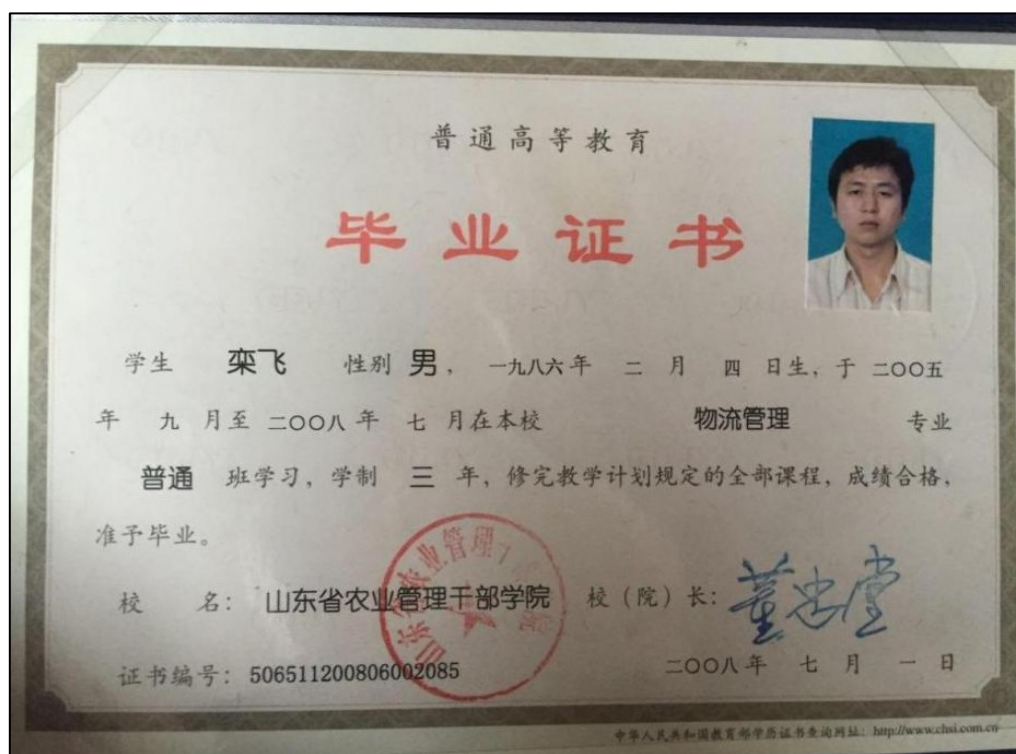 普通高等教育
毕业证书
学生 栾飞 性别 男，一九八六年 二 月 四 日生，于 二〇〇五
年 九 月至 二〇〇八 年 七 月在本校 物流管理 专业
普通 班学习，学制 三 年，修完教学计划规定的全部课程，成绩合格，
准予毕业。
校 名：山东省农业管理干部学院 校（院）长：
山东省农业管理干部学院
证书编号：506511200806002085 二〇〇八年 七 月 一 日
中华人民共和国教育部学历证书查询网址：http://www.chsi.com.cn